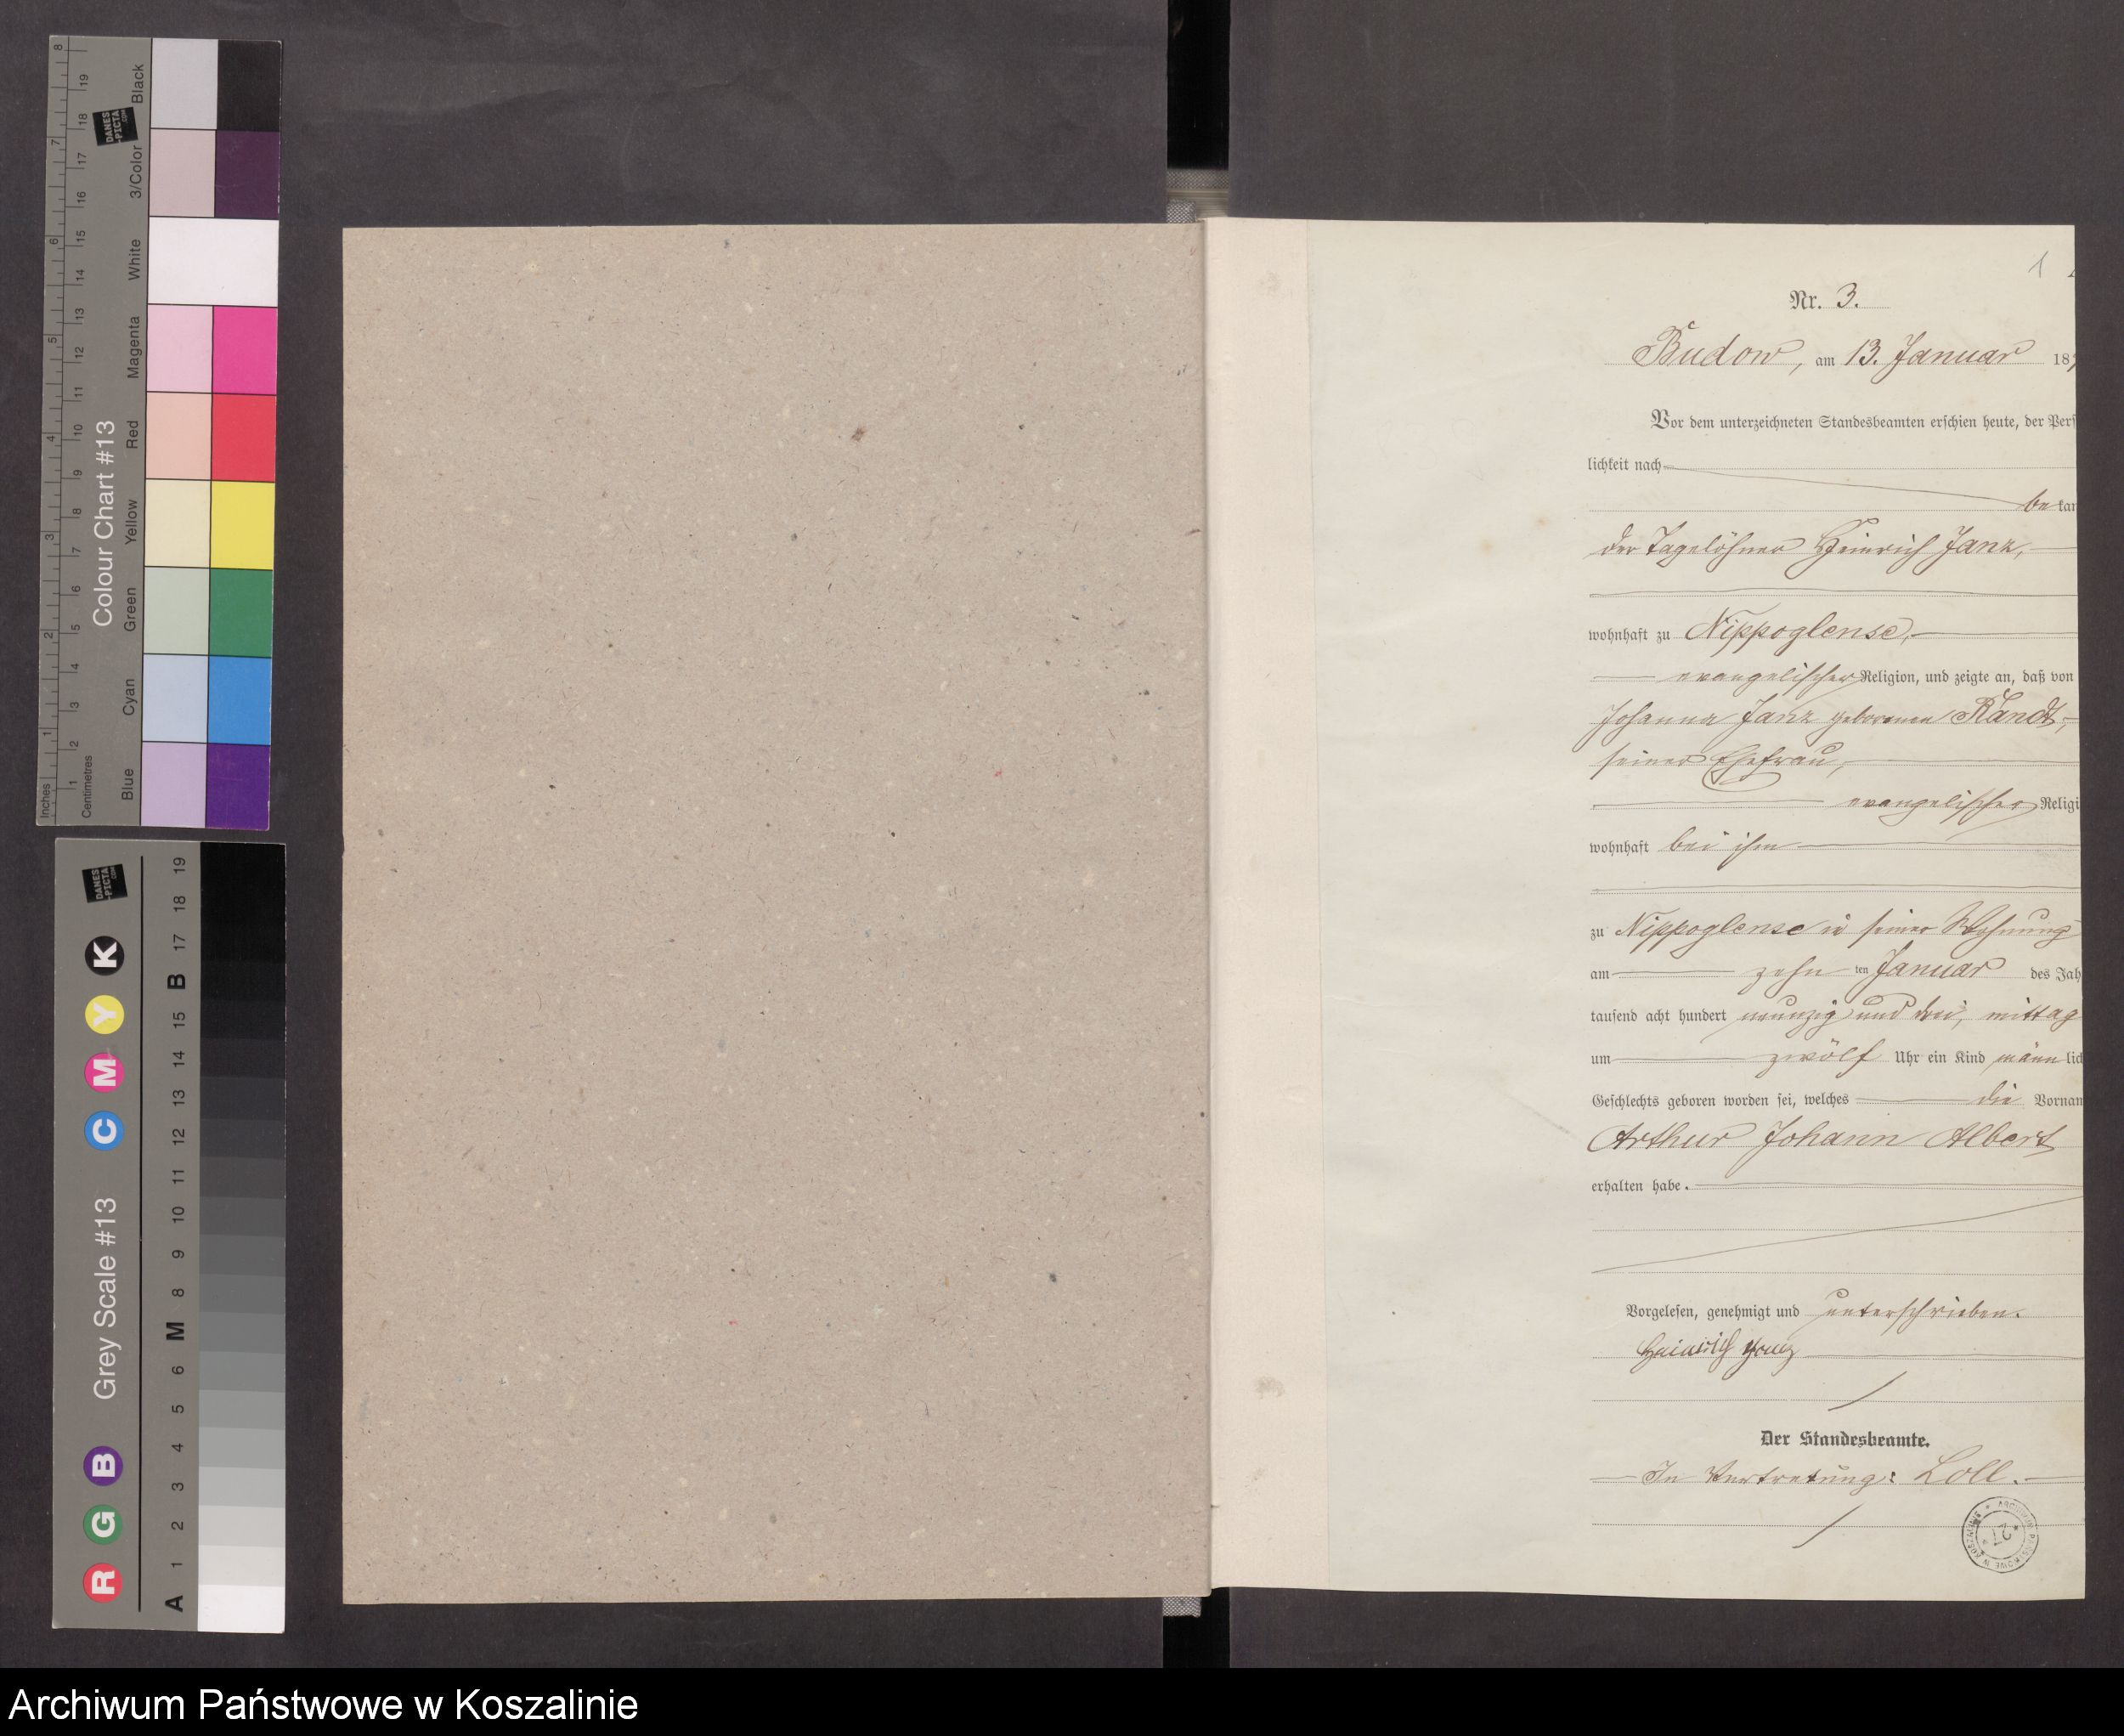 Colour Chart #13
Inches
Centimetres
Blue
Cyan
Green
Yellow
Red
Magenta
White
3/Color
Black
DANES
-PICTA
.COM
Grey Scale #13
R G B C M Y K
A 1 2 3 4 5 6 M 8 9 10 11 12 13 14 15 B 17 18 19
DANES
-PICTA
.COM
1
Nr. 3.
Budow, am 13. Januar 18
Vor dem unterzeichneten Standesbeamten erschien heute, der Pers
lichkeit nach
bekan
der Tagelöhner Heinrich Janz,
wohnhaft zu Nippoglense,
evangelischer Religion, und zeigte an, daß von
Johanna Janz geborenen Kandt,
seiner Ehefrau,
evangelischer Religi
wohnhaft bei ihm
zu Nippoglense in seiner Wohnung
am zehn ten Januar des Jah
tausend acht hundert neunzig und drei, mittag
um zwölf Uhr ein Kind männ lic
Geschlechts geboren worden sei, welches die Vornam
Arthur Johann Albert
erhalten habe.
Vorgelesen, genehmigt und unterschrieben.
Heinrich Janz
Der Standesbeamte.
In Vertretung: Loll.
ARCHIWUM PAŃSTWOWE W KOSZALINIE
27
Archiwum Państwowe w Koszalinie